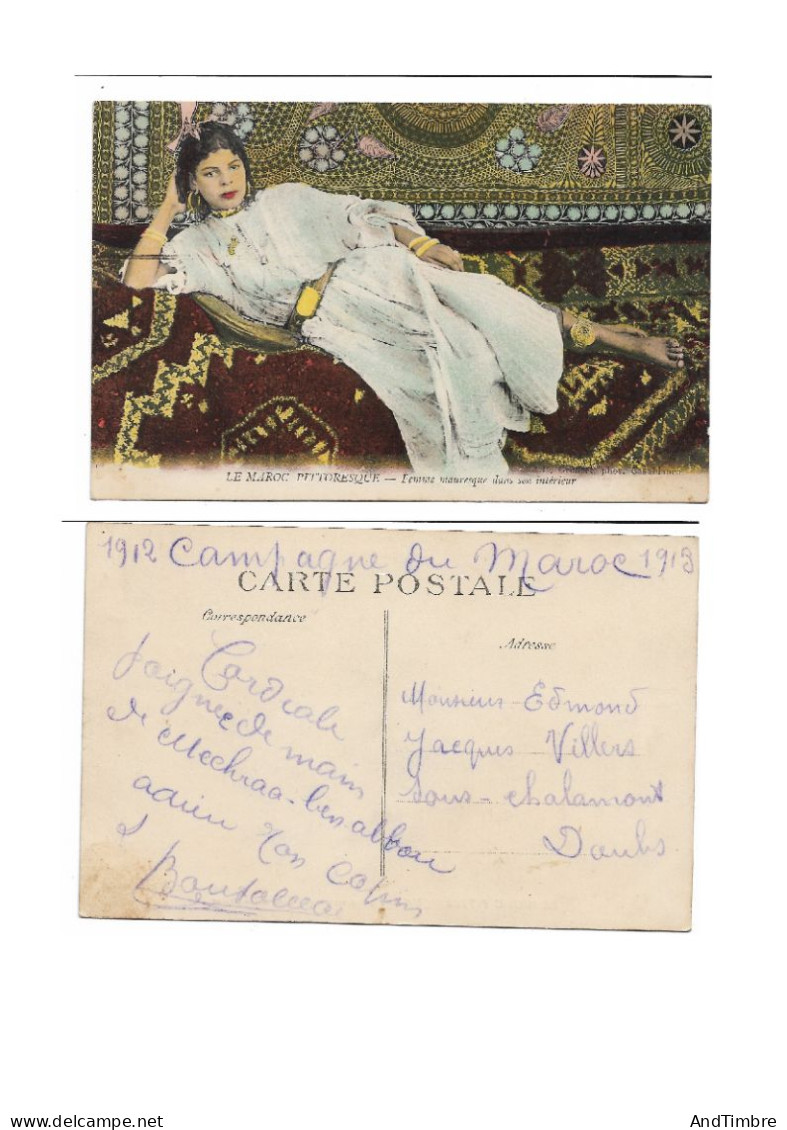 LE MAROC PITTORESQUE — Femme mauresque dans son intérieur
phot. Casablanca
1912 Campagne du Maroc 1913
CARTE POSTALE
Correspondance
Adresse
Cordiale
poignée de main
de Mechraa-ben abbou
adieu
Monsieur Edmond
Jacques Villers
Sous-chalamont
Doubs
AndTimbre